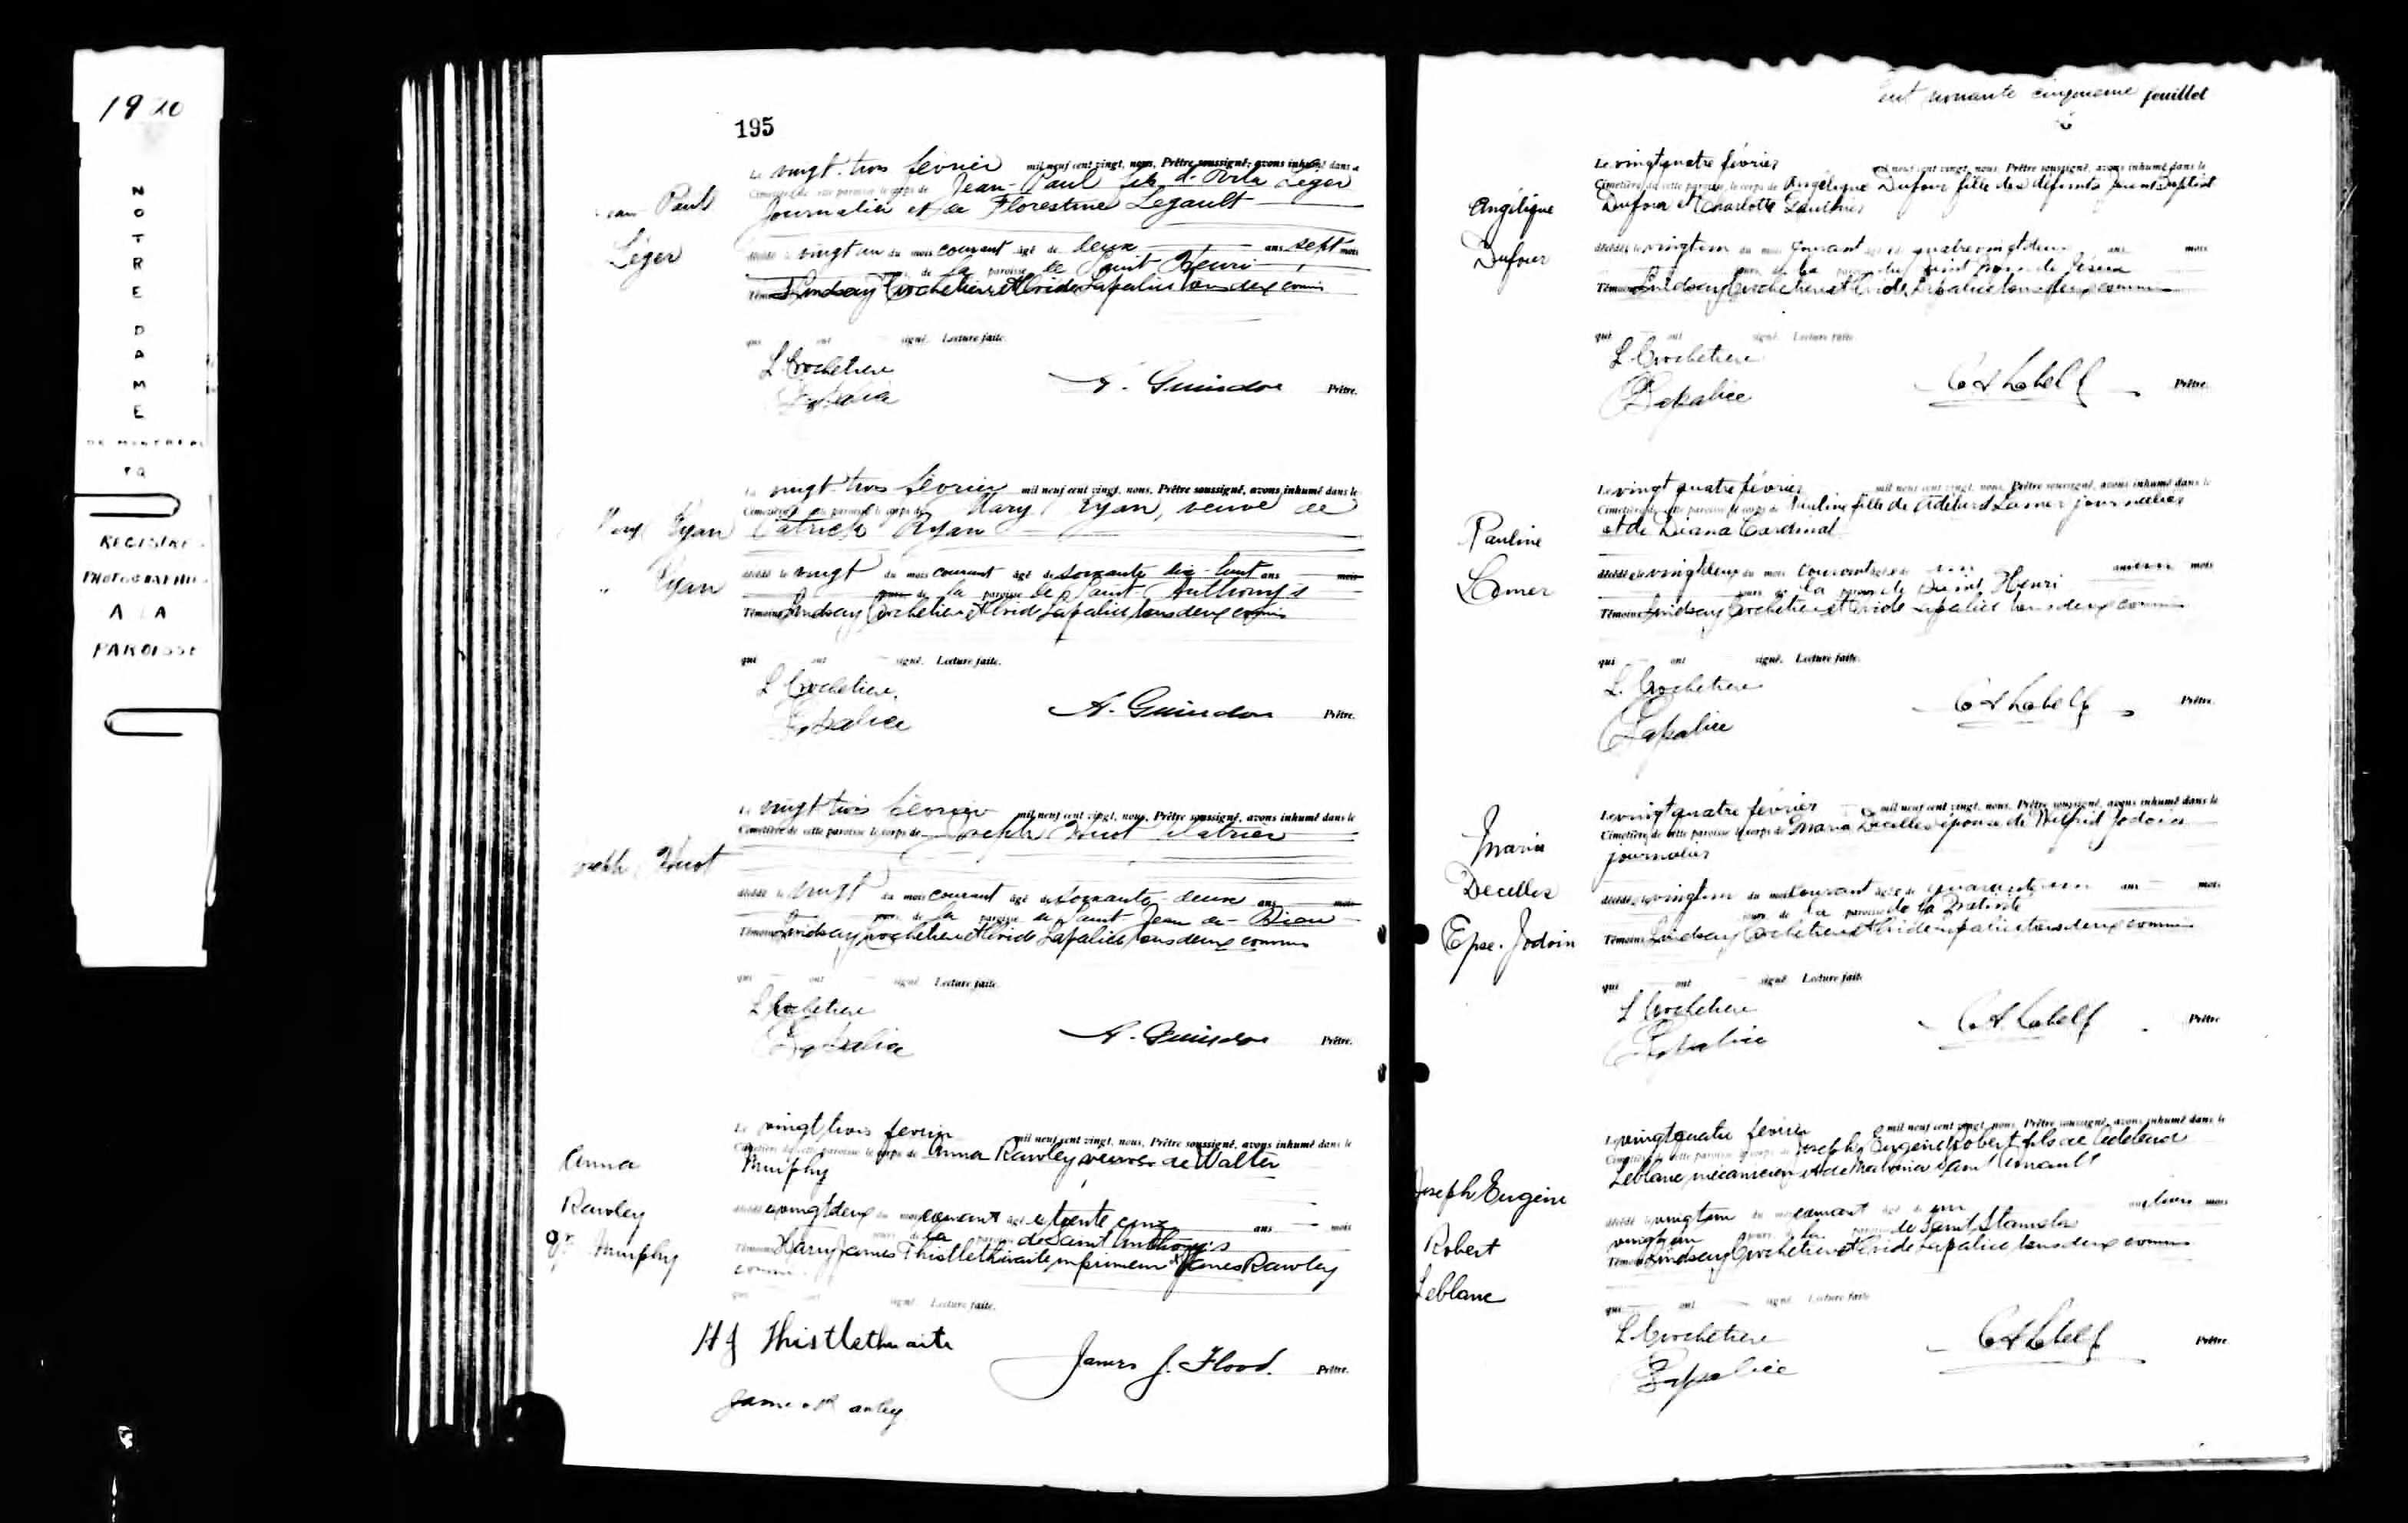 1920
NOTRE DAME
DE MONTREAL
PQ
REGISTRE
PHOTOGRAPHIE
A LA
PAROISSE
195
Le vingt-trois février mil neuf cent vingt, nous, Prêtre soussigné, avons inhumé dans le
Cimetière de cette paroisse le corps de Jean-Paul fils d'Ovila Léger
journalier et de Florestine Legault
Jean Paul
Léger
décédé le vingt un du mois courant âgé de deux ans sept mois
jours de la paroisse de Saint Henri
Témoins Lindsay Crochetiere et Ovide Lapalice tous deux commis
qui ont signé. Lecture faite.
L Crochetiere
Lapalice
A. Guindon Prêtre.
Le vingt-trois février mil neuf cent vingt, nous, Prêtre soussigné, avons inhumé dans le
Cimetière de cette paroisse le corps de Mary Ryan, veuve de
Patrick Ryan
Mary Ryan
" Ryan
décédé le vingt du mois courant âgé de soixante dix-huit ans mois
jours de la paroisse de Saint Anthony's
Témoins Lindsay Crochetiere et Ovide Lapalice tous deux commis
qui ont signé. Lecture faite.
L Crochetiere
Lapalice
A. Guindon Prêtre.
Le vingt-trois février mil neuf cent vingt, nous, Prêtre soussigné, avons inhumé dans le
Cimetière de cette paroisse le corps de Joseph Huot
Joseph Huot
décédé le vingt du mois courant âgé de soixante-deux ans mois
jours de la paroisse de Saint-Jean-de-Dieu
Témoins Lindsay Crochetiere et Ovide Lapalice tous deux commis
qui ont signé. Lecture faite.
L Crochetiere
Lapalice
A. Guindon Prêtre.
Le vingt trois fevrier mil neuf cent vingt, nous, Prêtre soussigné, avons inhumé dans le
Cimetière de cette paroisse le corps de Anna Rawley veuve de Walter
Murphy
Anna
Rawley
Murphy
décédé le vingt deux du mois courant âgé de trente cinq ans mois
jours de la paroisse de Saint Anthony's
Témoins Harry James Thistlethwaite imprimeur & James Rawley
commis
qui ont signé. Lecture faite.
H J Thistlethwaite
James J. Flood. Prêtre.
James Rawley
Cent nonante cinquième feuillet
Le vingt quatre février mil neuf cent vingt, nous, Prêtre soussigné, avons inhumé dans le
Cimetière de cette paroisse, le corps de Angélique Dufour fille des défunts Jean Baptiste
Dufour et Charlotte Gauthier
Angélique
Dufour
décédée le vingt un du mois courant âgée de quatre vingt deux ans mois
jours de la paroisse du Saint Nom de Jésus
Témoins Lindsay Crochetiere et Ovide Lapalice tous deux commis
qui ont signé. Lecture faite.
L Crochetiere
Lapalice
C A Labelle Prêtre.
Le vingt quatre février mil neuf cent vingt, nous, Prêtre soussigné, avons inhumé dans le
Cimetière de cette paroisse le corps de Pauline fille de Adélard Lamer journalier
et de Diana Cardinal
Pauline
Lamer
décédée le vingt deux du mois courant âgée de mois
jours de la paroisse de Saint Henri
Témoins Lindsay Crochetiere et Ovide Lapalice tous deux commis
qui ont signé. Lecture faite.
L. Crochetiere
Lapalice
C A Labelle Prêtre.
Le vingt quatre février mil neuf cent vingt, nous, Prêtre soussigné, avons inhumé dans le
Cimetière de cette paroisse le corps de Maria Decelles épouse de Wilfrid Jodoin
journalier
Maria
Decelles
Epse. Jodoin
décédée le vingt un du mois courant âgée de quarante un ans mois
jours de la paroisse de la Nativité
Témoins Lindsay Crochetiere et Ovide Lapalice tous deux commis
qui ont signé. Lecture faite.
L Crochetiere
Lapalice
C.A. Labelle Prêtre
Le vingt quatre février mil neuf cent vingt, nous, Prêtre soussigné, avons inhumé dans le
Cimetière de cette paroisse le corps de Joseph Eugène Robert fils de Adélard
Leblanc mécanicien et de Malvina Saint Renault
Joseph Eugène
Robert
Leblanc
décédé le vingt un du mois courant âgé de un an trois mois
vingt un jours de la paroisse de Saint Stanislas
Témoins Lindsay Crochetiere et Ovide Lapalice tous deux commis
qui ont signé. Lecture faite.
L. Crochetiere
Lapalice
C A Labelle Prêtre.